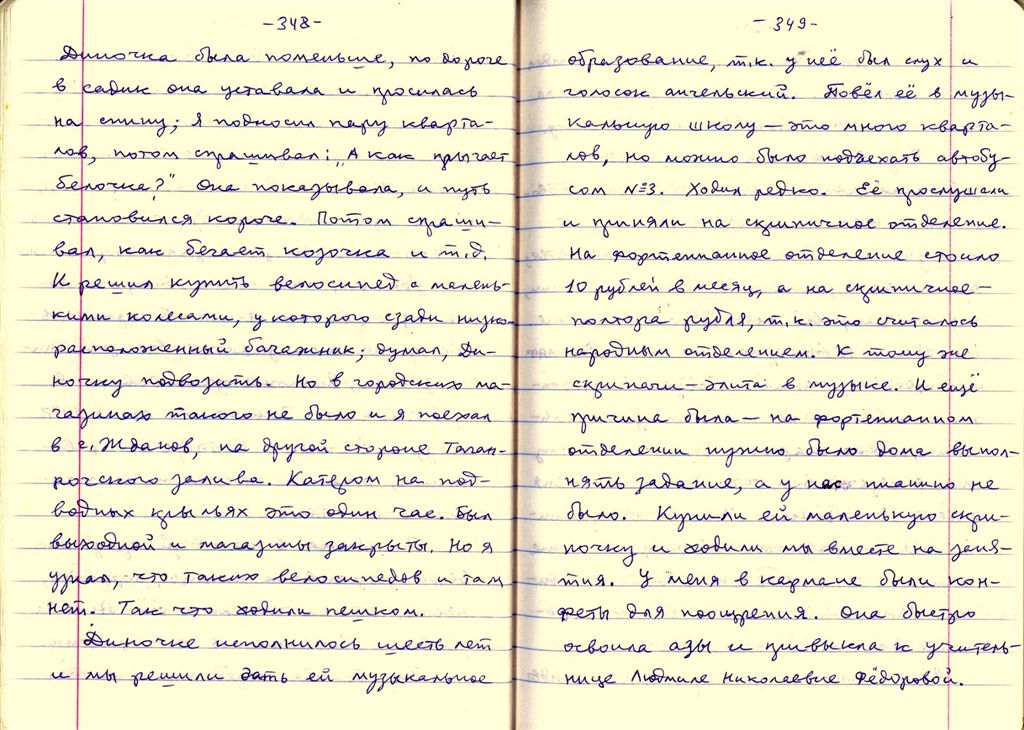 -348-
Диночка была поменьше, по дороге
в садик она уставала и просилась
на спину; Я подносил пару кварта-
лов, потом спрашивал: „А как прыгает
белочка?" Она показывала, и путь
становился короче. Потом спраши-
вал, как бегает козочка и т.д.
И решил купить велосипед с малень-
кими колесами, у которого сзади низко-
расположенный багажник; думал, Ди-
ночку подвозить. Но в городских ма-
газинах такого не было и я поехал
в г. Жданов, на другой стороне Таган-
рогского залива. Катером на под-
водных крыльях это один час. Был
выходной и магазины закрыты. Но я
узнал, что таких велосипедов и там
нет. Так что ходили пешком.
Диночке исполнилось шесть лет
и мы решили дать ей музыкальное
-349-
образование, т.к. у неё был слух и
голосок ангельский. Повёл её в музы-
кальную школу — это много кварта-
лов, но можно было подъехать автобу-
сом №3. Ходил редко. Её прослушали
и приняли на скрипичное отделение.
На фортепианное отделение стоило
10 рублей в месяц, а на скрипичное —
полтора рубля, т.к. это считалось
народным отделением. К тому же
скрипачи — элита в музыке. И ещё
причина была — на фортепианном
отделении нужно было дома выпол-
нять задание, а у нас пианино не
было. Купили ей маленькую скри-
почку и ходили мы вместе на заня-
тия. У меня в кармане были кон-
феты для поощрения. Она быстро
освоила азы и привыкла к учитель-
нице Людмиле Николаевне Фёдоровой.